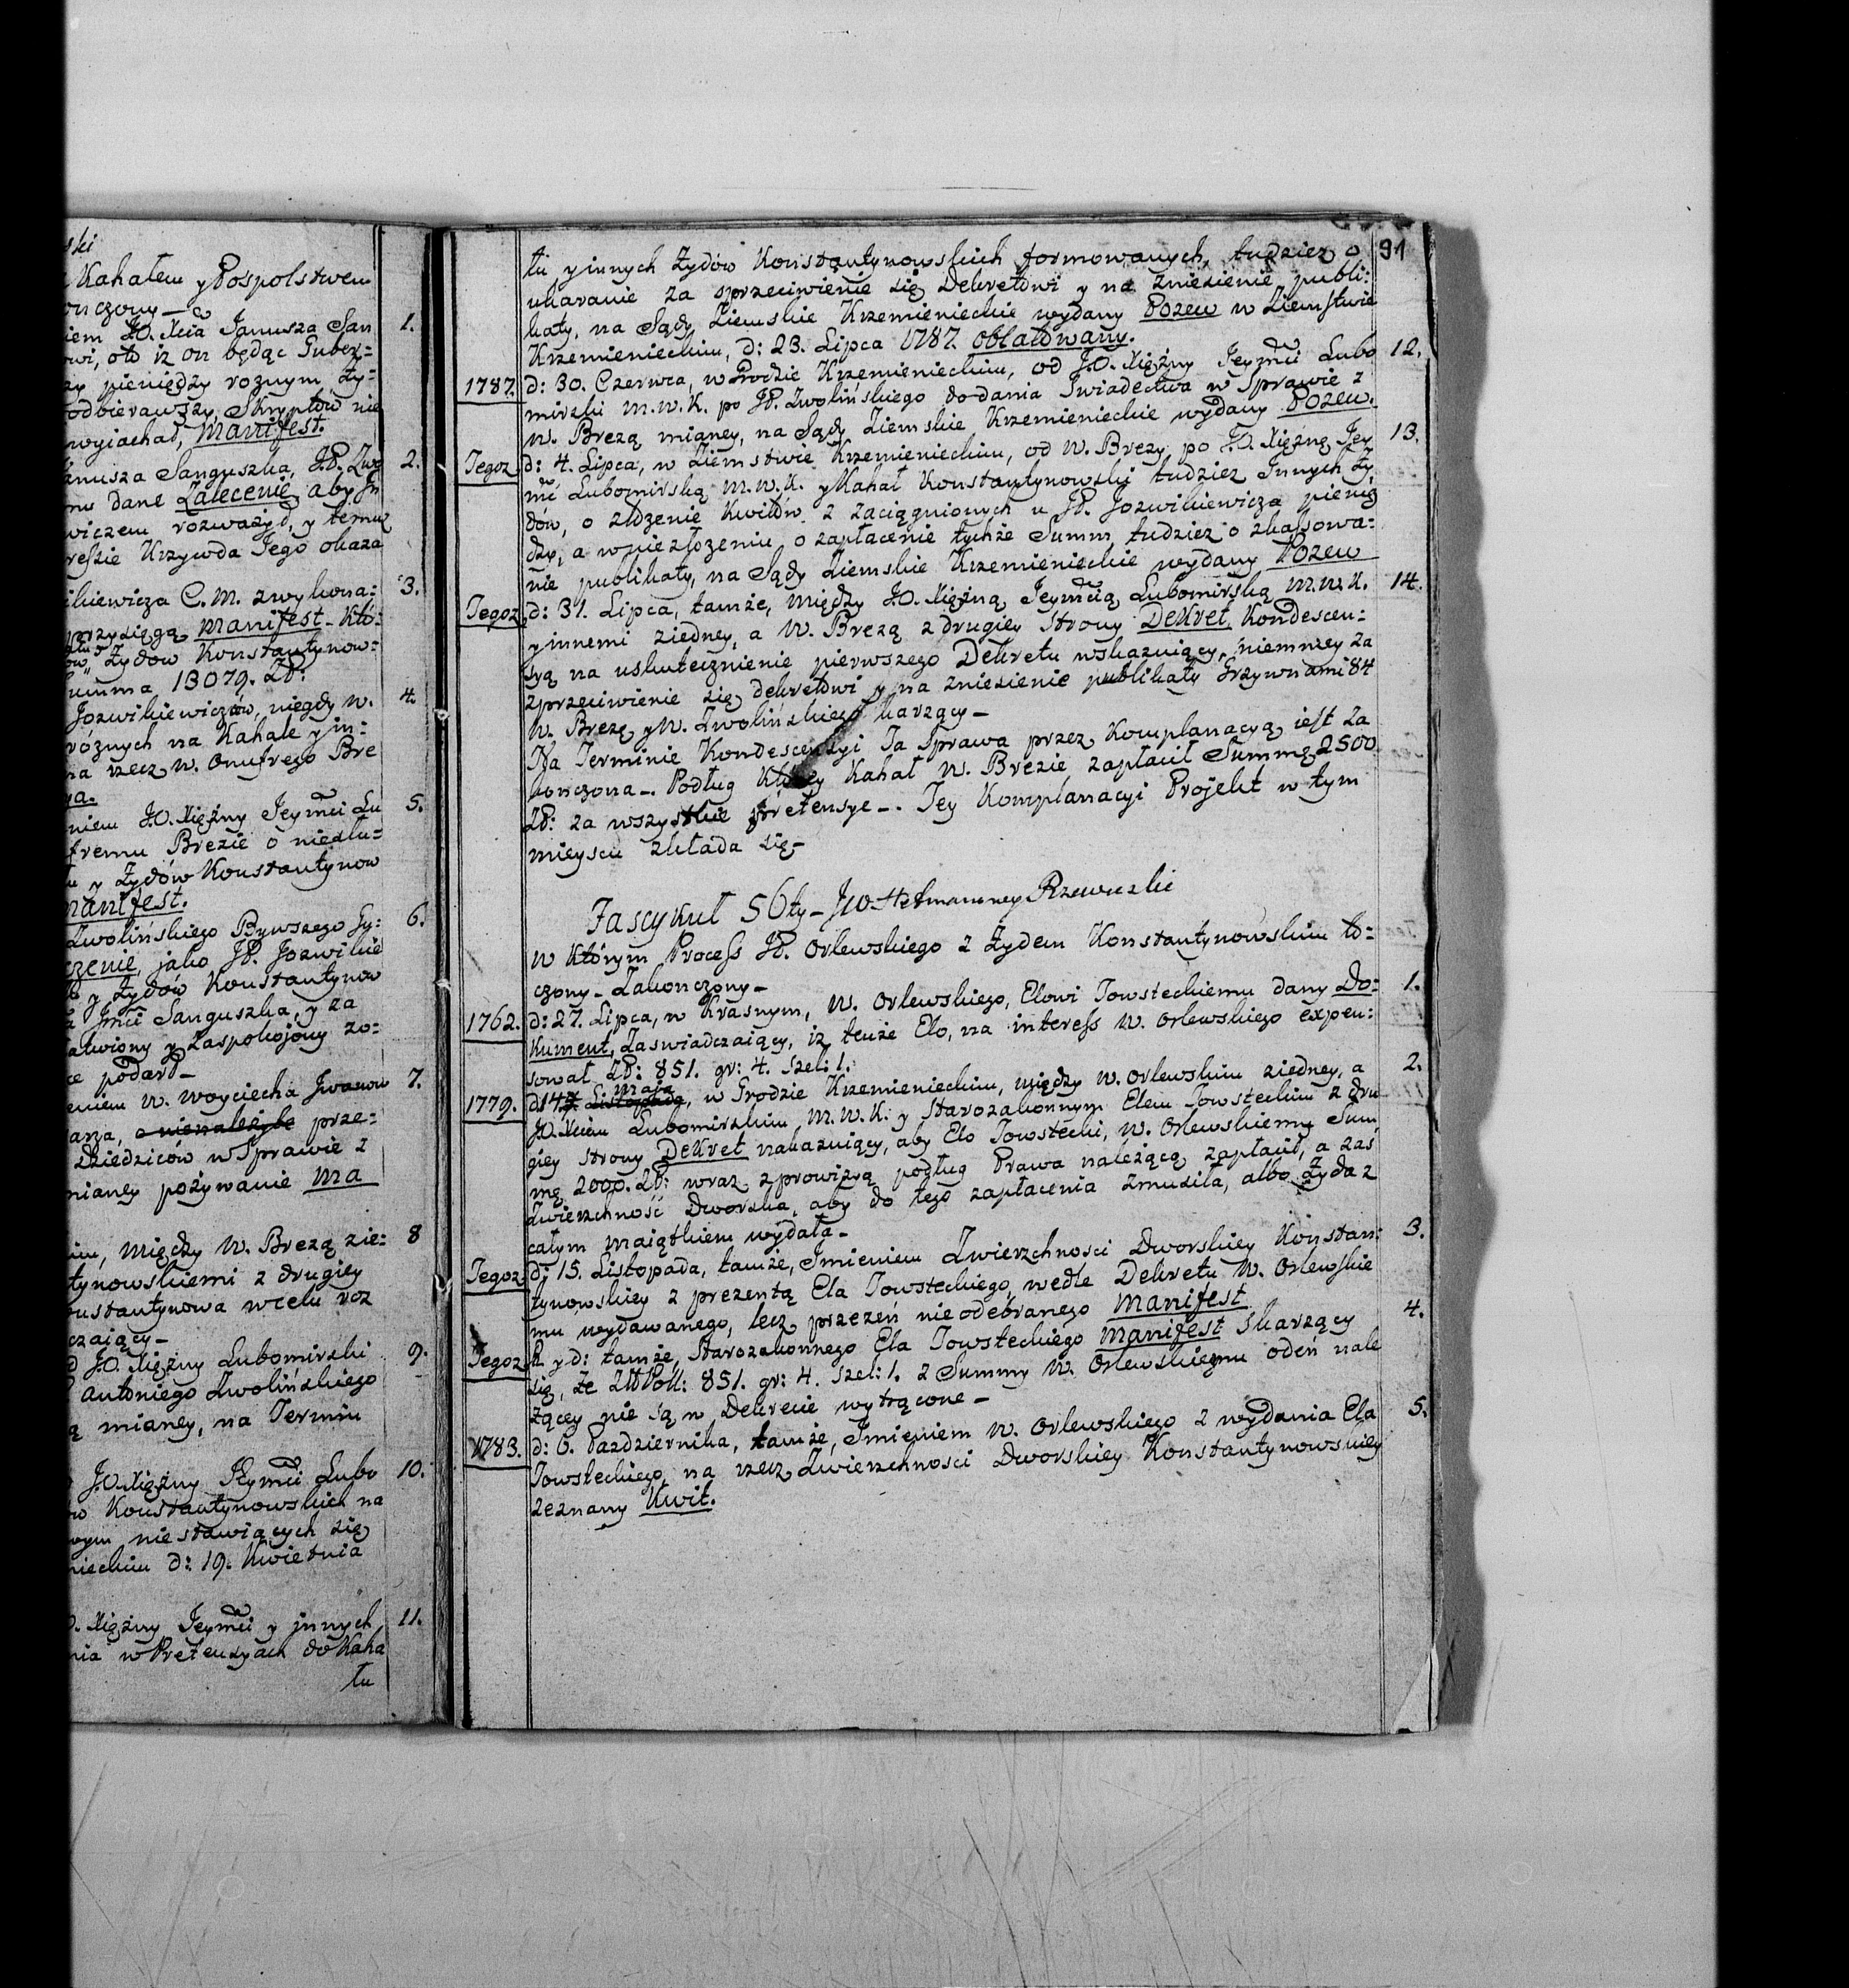 ski
Kahałem y Pospolstwem
ończony —
iem J.O. Xcia Janusza San 1.
owi, oto iz on będąc Guber=
zy pieniędzy roznym, Ży=
odbierawszy, Skryptów nie
wyiachał, Manifest.
anusza Sanguszka, JP. Zwo 2.
mu dane Zalecenie, aby Jn
wiczem rozważył, y temu
resie Krzywda Jego okaza
ikiewicza C. M. zwykona= 3.
przysięgą Manifest – Któ=
ów, Żydow Konstantynow=
summa 13079. Zł:
Jozwikiewiczów, niegdy W. 4.
różnych na Kahale y in=
na rzecz W. Onufrego Bre
ya.
niem J.O. Xiężny Jeymci Lu 5.
fremu Brezie o niedłu=
u y Żydów Konstantynow
Manifest.
Zwolińskiego Bywszego Gu= 6.
czenie, jako JP. Jozwikie
y Żydów Konstantynow
a Jmci Sanguszka, y za
atwiony y Zaspokojony zo=
ce podard –
eniem W. Woyciecha Jwanow 7.
arza, o nienależyte prze=
Dziedziców w Sprawie z
mianey pożywanie Ma
im, między W. Brezą zie= 8
tynowskiemi z drugiey
nstantynowa wcelu roz
czaiący –
J.O. Xiężny Lubomirski 9.
Antoniego Zwolińskiego
ą mianey, na Termin
J.O. Xiężny Jeymci Lubo 10.
w Konstantynowskich na
wym niestawiących się
nieckim d: 19. Kwietnia
O. Xiężny Jeymci y jnnych 11.
nia w Pretensyach do Kaha
łu
91
łu y innych Żydów Konstantynowskich formowanych, tudziez o
ukaranie za sprzeciwienie się Dekretowi y na zniesienie publi=
katy, na Sądy Ziemskie Krzemienieckie wydany Pozew w Ziemstwie
Krzemienieckim, d: 23. Lipca 1787. oblatowany.
1787. d: 30. Czerwca, w Grodzie Krzemienieckim, od J.O. Xiężny Jeymci Lubo 12.
mirski M.W.K. po JP. Zwolińskiego do dania Swiadectwa w Sprawie z
W. Brezą mianey, na Sądy Ziemskie Krzemienieckie wydany Pozew.
Tegoz d: 4. Lipca, w Ziemstwie Krzemienieckim, od W. Brezy po J.O. Xiężnę Jey 13.
mć Lubomirską M.W.K. y Kahał Konstantynowski tudziez Jnnych Ży
dów, o złozenie Kwitów z zaciągnionych u JP. Jozwikiewicza pienię
dzy, a w niezłozeniu, o zapłacenie tychże Summ, tudziez o skassowa=
nie publikaty, na Sądy Ziemskie Krzemienieckie wydany Pozew
Tegoz d: 31. Lipca, tamże, między J.O. Xiężną Jeymcią Lubomirską M.W.K. 14.
y innemi ziedney, a W. Brezą z drugiey Strony Dekret, Kondescen=
syą na uskutecznienie pierwszego Dekretu wskazuiący, niemniey za
zprzeciwienie się dekretowi y na zniesienie publikaty Grzywnami 84
W. Brezę y W. Zwolińskiego karzący –
Na Terminie Kondescensyi Ta Sprawa przez Komplanacyą iest Za
kończona –. Podług Ktorey Kahał W. Brezie zapłacił Summę 2500
Zł: za wszystkie pretensye –. Tey Komplanacyi Projekt w tym
mieyscu składa się –
Fascykuł 56ty – JW Hetmanowey Rzewuski
w Którym Process JP. Orlewskiego z Żydem Konstantynowskim to=
czony – Zakończony –
1762. d: 27. Lipca, w Krasnym, W. Orlewskiego, Elowi Towsteckiemu dany Do= 1.
kument, Zaswiadczaiący, iz tenże Elo, na interess W. Orlewskiego expen=
sował Zł: 851. gr: 4. szel: 1.
1779. d: 14 Listopada Maja, w Grodzie Krzemienieckim, między W. Orlewskim ziedney, a 2.
J.O. Xciem Lubomirskim M.W.K. y Starozakonnym Elem Towsteckim z dru
giey Strony Dekret nakazuiący, aby Elo Towstecki, W. Orlewskiemu Sum
mę 2000. Zł: wraz z prowizyą podług Prawa należącą zapłacił, a zaś
Zwierzchność Dworska, aby do tego zapłacenia zmusiła, albo Żyda z
całym maiątkiem wydała –
Tegoz d: 15. Listopada, tamże, Jmieniem Zwierzchnosci Dworskiey Konstan= 3.
tynowskiey z prezentą Ela Towsteckiego, wedle Dekretu W. Orlewskie
mu wydawanego, lecz przezeń nieodebranego Manifest
Tegoz R. y d: tamże, Starozakonnego Ela Towsteckiego Manifest Skarzący 4.
się, że Zł Poll: 851. gr: 4. szel: 1. z Summy W. Orlewskiemu odeń nale
żącey nie są w Dekrecie wytrącone –
1783. d: 6. Pazdziernika, tamże, Jmieniem W. Orlewskiego z wydania Ela 5.
Towsteckiego, na rzecz Zwierzchnosci Dworskiey Konstantynowskiey
zeznany Kwit.